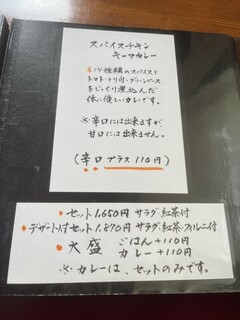 スパイスチキン
キーマカレー
※14種類のスパイスと
トマト・トリ肉・グリーンピース
をじっくり煮込んだ
体に優しいカレーです。
※辛口には出来ますが
甘口には出来ません。
(辛口プラス110円)
・セット1,650円 サラダ、紅茶付
・デザート付セット1,870円 サラダ、紅茶、フィルニ付
・大盛 ごはん+110円
カレー+110円
※カレーは、セットのみです。